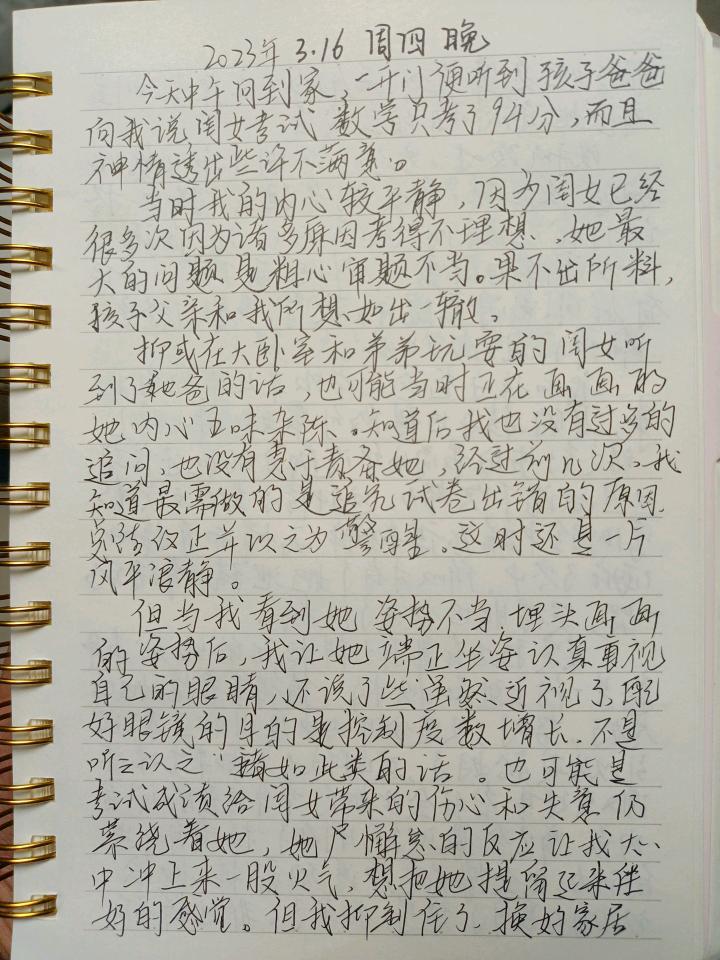 2023年 3.16 周四 晚
今天中午回到家，一开门便听到孩子爸爸
向我说闺女考试 数学只考了94分，而且
神情透出些许不满意。
当时我的内心较平静，因为闺女已经
很多次因为诸多原因考得不理想，她最
大的问题是粗心审题不当。果不出所料，
孩子父亲和我所想如出一辙。
抑或在大卧室和弟弟玩耍的闺女听
到了她爸的话，也可能当时正在画画的
她内心五味杂陈。知道后我也没有过多的
追问，也没有急于责备她，经过前几次，我
知道最需做的是追究试卷出错的原因，
总结改正并以之为警醒。这时还是一片
风平浪静。
但当我看到她 姿势不当，埋头画画
的姿势后，我让她端正坐姿认真重视
自己的眼睛，还说了些"虽然近视了，配
好眼镜的目的是控制度数增长，不是
听之认之"诸如此类的话。也可能是
考试成绩给闺女带来的伤心和失意仍
萦绕着她，她 懈怠的反应让我大心
中冲上来一股火气，想把她提留起来
好的感觉。但我抑制住了，换好家居